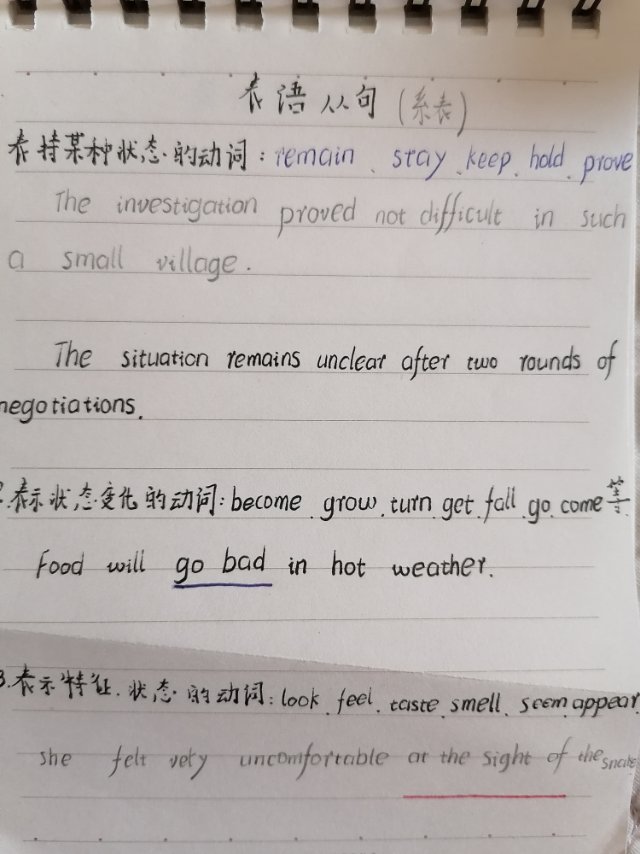 表语从句(系表)
表持某种状态的动词：remain、stay、keep、hold、prove
The investigation proved not difficult in such
a small village.
The situation remains unclear after two rounds of
negotiations.
表示状态变化的动词：become、grow、turn、get、fall、go、come等
Food will go bad in hot weather.
3.表示特征、状态的动词：look、feel、taste、smell、seem、appear
she felt very uncomfortable at the sight of the snake